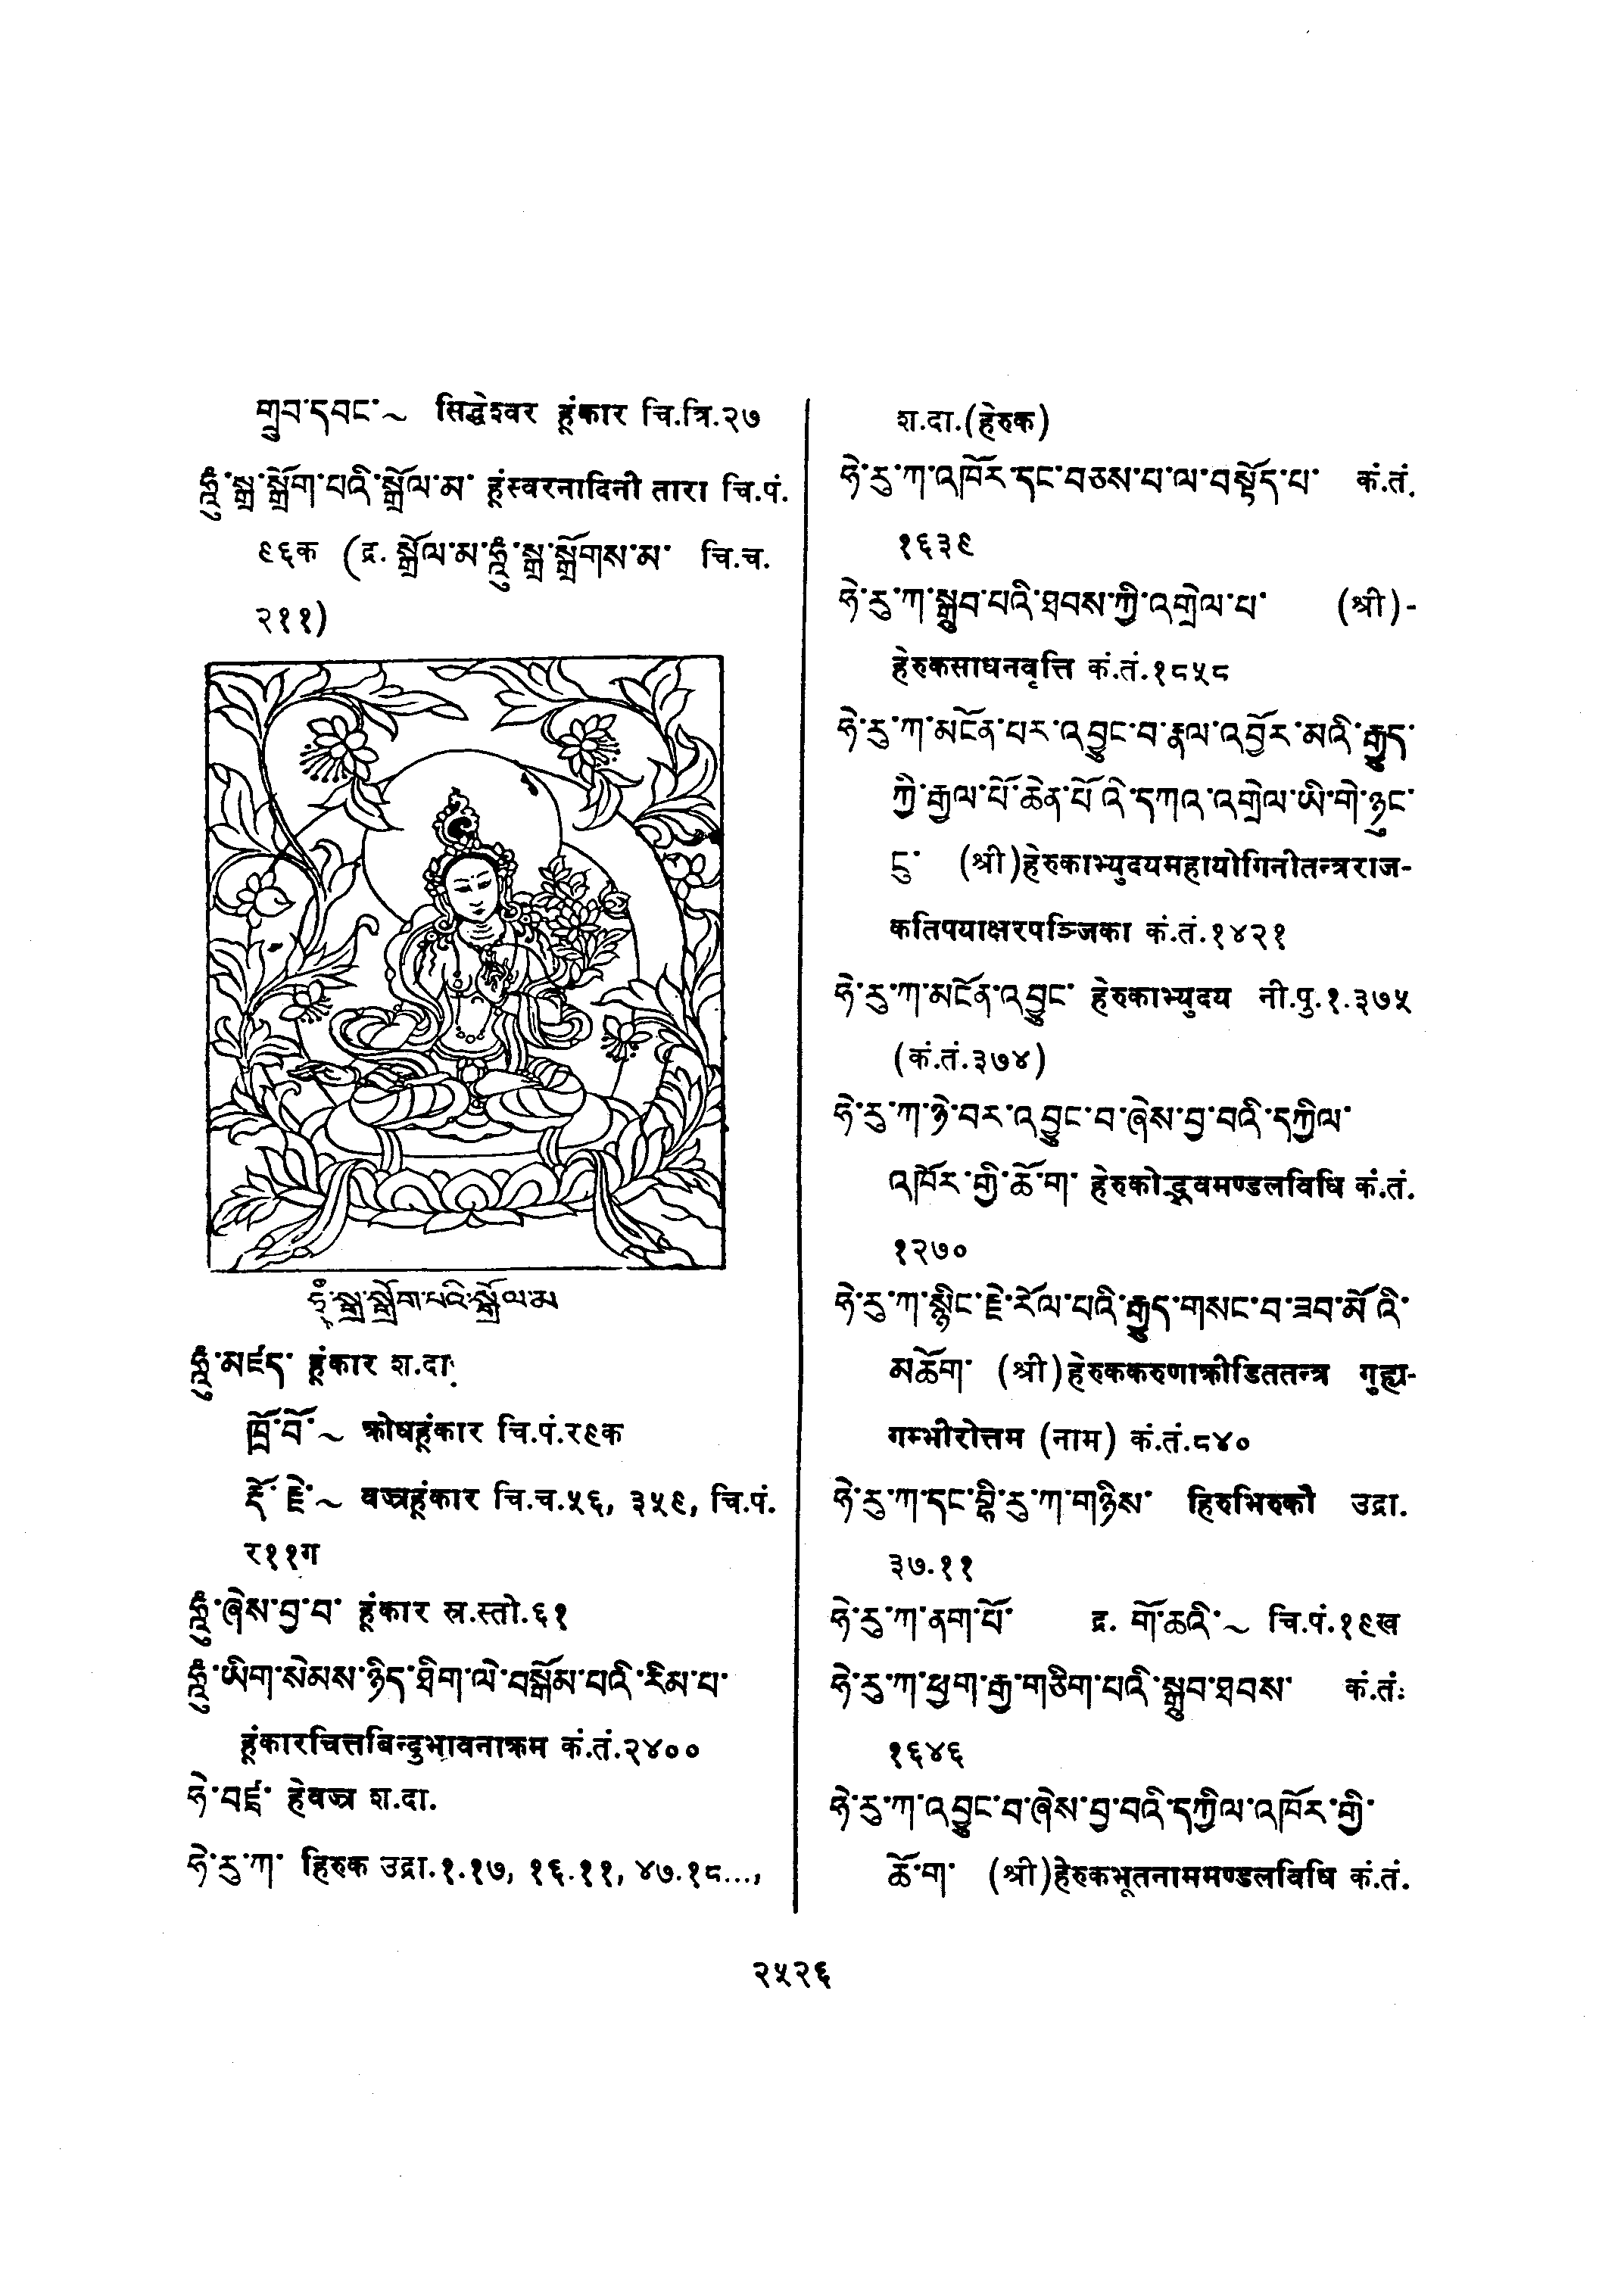 གྲུབ་དབང་~ सिद्धेश्वर हूंकार चि.त्रि.२७
ཧཱུྃ་སྒྲ་སྒྲོག་པའི་སྒྲོལ་མ་ हूंस्वरनादिनी तारा चि.पं.
९६क (द्र. སྒྲོལ་མ་ཧཱུྃ་སྒྲ་སྒྲོགས་མ་ चि.च.
२११)
ཧཱུྃ་སྒྲ་སྒྲོག་པའི་སྒྲོལ་མ
ཧཱུྃ་མཛད་ हूंकार श.दा.
ཁྲོ་བོ་~ क्रोधहूंकार चि.पं.र९क
རྡོ་རྗེ་~ वज्रहूंकार चि.च.५६, ३५९, चि.पं.
र११ग
ཧཱུྃ་ཞེས་བྱ་བ་ हूंकार स्र.स्तो.६१
ཧཱུྃ་ཡིག་སེམས་ཉིད་ཐིག་ལེ་བསྒོམ་བའི་རིམ་པ་
हूंकारचित्तबिन्दुभावनाक्रम कं.तं.२४००
ཧེ་བཛྲ་ हेवज्र श.दा.
ཧེ་རུ་ཀ་ हिरुक उद्रा.१.१७, १६.११, ४७.१८...,
श.दा.(हेरुक)
ཧེ་རུ་ཀ་འཁོར་དང་བཅས་པ་ལ་བསྟོད་པ་ कं.तं.
१६३९
ཧེ་རུ་ཀ་སྒྲུབ་པའི་ཐབས་ཀྱི་འགྲེལ་པ་ (श्री)-
हेरुकसाधनवृत्ति कं.तं.१८५८
ཧེ་རུ་ཀ་མངོན་པར་འབྱུང་བ་རྣལ་འབྱོར་མའི་རྒྱུད་
ཀྱི་རྒྱལ་པོ་ཆེན་པོའི་དཀའ་འགྲེལ་ཡི་གེ་ཉུང་
ངུ་ (श्री)हेरुकाभ्युदयमहायोगिनीतन्त्रराज-
कतिपयाक्षरपञ्जिका कं.तं.१४२१
ཧེ་རུ་ཀ་མངོན་འབྱུང་ हेरुकाभ्युदय नी.पु.१.३७५
(कं.तं.३७४)
ཧེ་རུ་ཀ་ཉེ་བར་འབྱུང་བ་ཞེས་བྱ་བའི་དཀྱིལ་
འཁོར་གྱི་ཆོ་ག་ हेरुकोद्भवमण्डलविधि कं.तं.
१२७०
ཧེ་རུ་ཀ་སྙིང་རྗེ་རོལ་པའི་རྒྱུད་གསང་བ་ཟབ་མོའི་
མཆོག་ (श्री)हेरुककरुणाक्रीडिततन्त्र गुह्य-
गम्भीरोत्तम (नाम) कं.तं.८४०
ཧེ་རུ་ཀ་དང་བྷི་རུ་ཀ་གཉིས་ हिरुभिरुकौ उद्रा.
३७.११
ཧེ་རུ་ཀ་ནག་པོ་ द्र. གོ་ཆའི་~ चि.पं.१९ख
ཧེ་རུ་ཀ་ཕྱག་རྒྱ་གཅིག་པའི་སྒྲུབ་ཐབས་ कं.तं.
१६४६
ཧེ་རུ་ཀ་འབྱུང་བ་ཞེས་བྱ་བའི་དཀྱིལ་འཁོར་གྱི་
ཆོ་ག་ (श्री)हेरुकभूतनाममण्डलविधि कं.तं.
२५२६